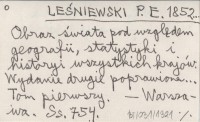 LEŚNIEWSKI P. E. 1852...
Obraz świata pod względem
geografii, statystyki i
historyi wszystkich krajów.
Wydanie drugie poprawione...
Tom pierwszy. — Warsza-
wa. Ss. 754.